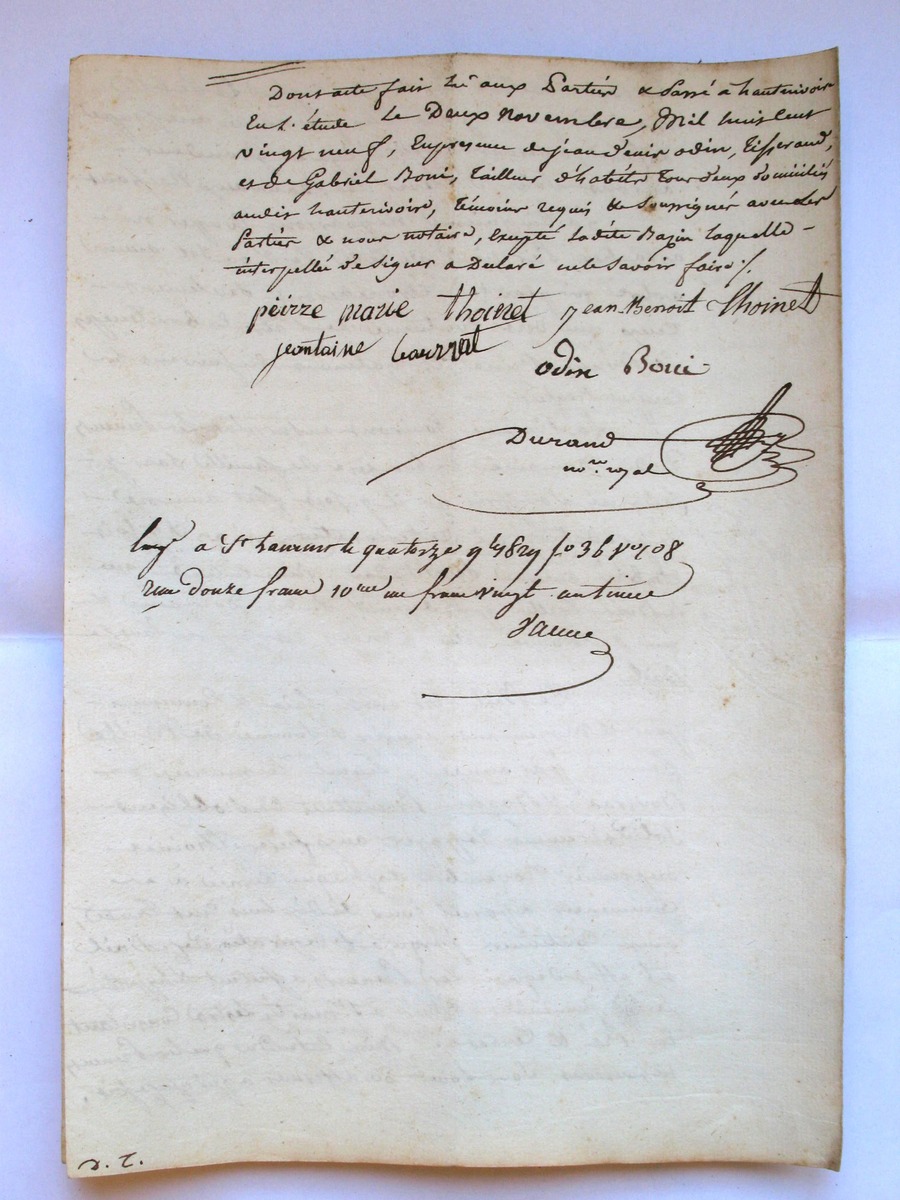 Dont acte fait lu aux Parties & Passé à hauterivoire
En l'étude le Deux novembre, Mil huit cent
vingt neuf, En presence de jean denis odin, Tisserand,
et de Gabriel Boni, tailleur d'habits tous deux domiciliés
audit hauterivoire, témoins requis & soussignés avec les
Parties & nous notaire, Excepté ladite Bazin laquelle -
interpellée de signer a Declaré ne le savoir faire ./.
peirre marie thoinet jean Benoit Thoinet
odin Boni
Durand
nore. royal
a St Laurent le quatorze 9bre 1829 fo 36 vo
douze francs 10me un franc vingt centimes
D. T.